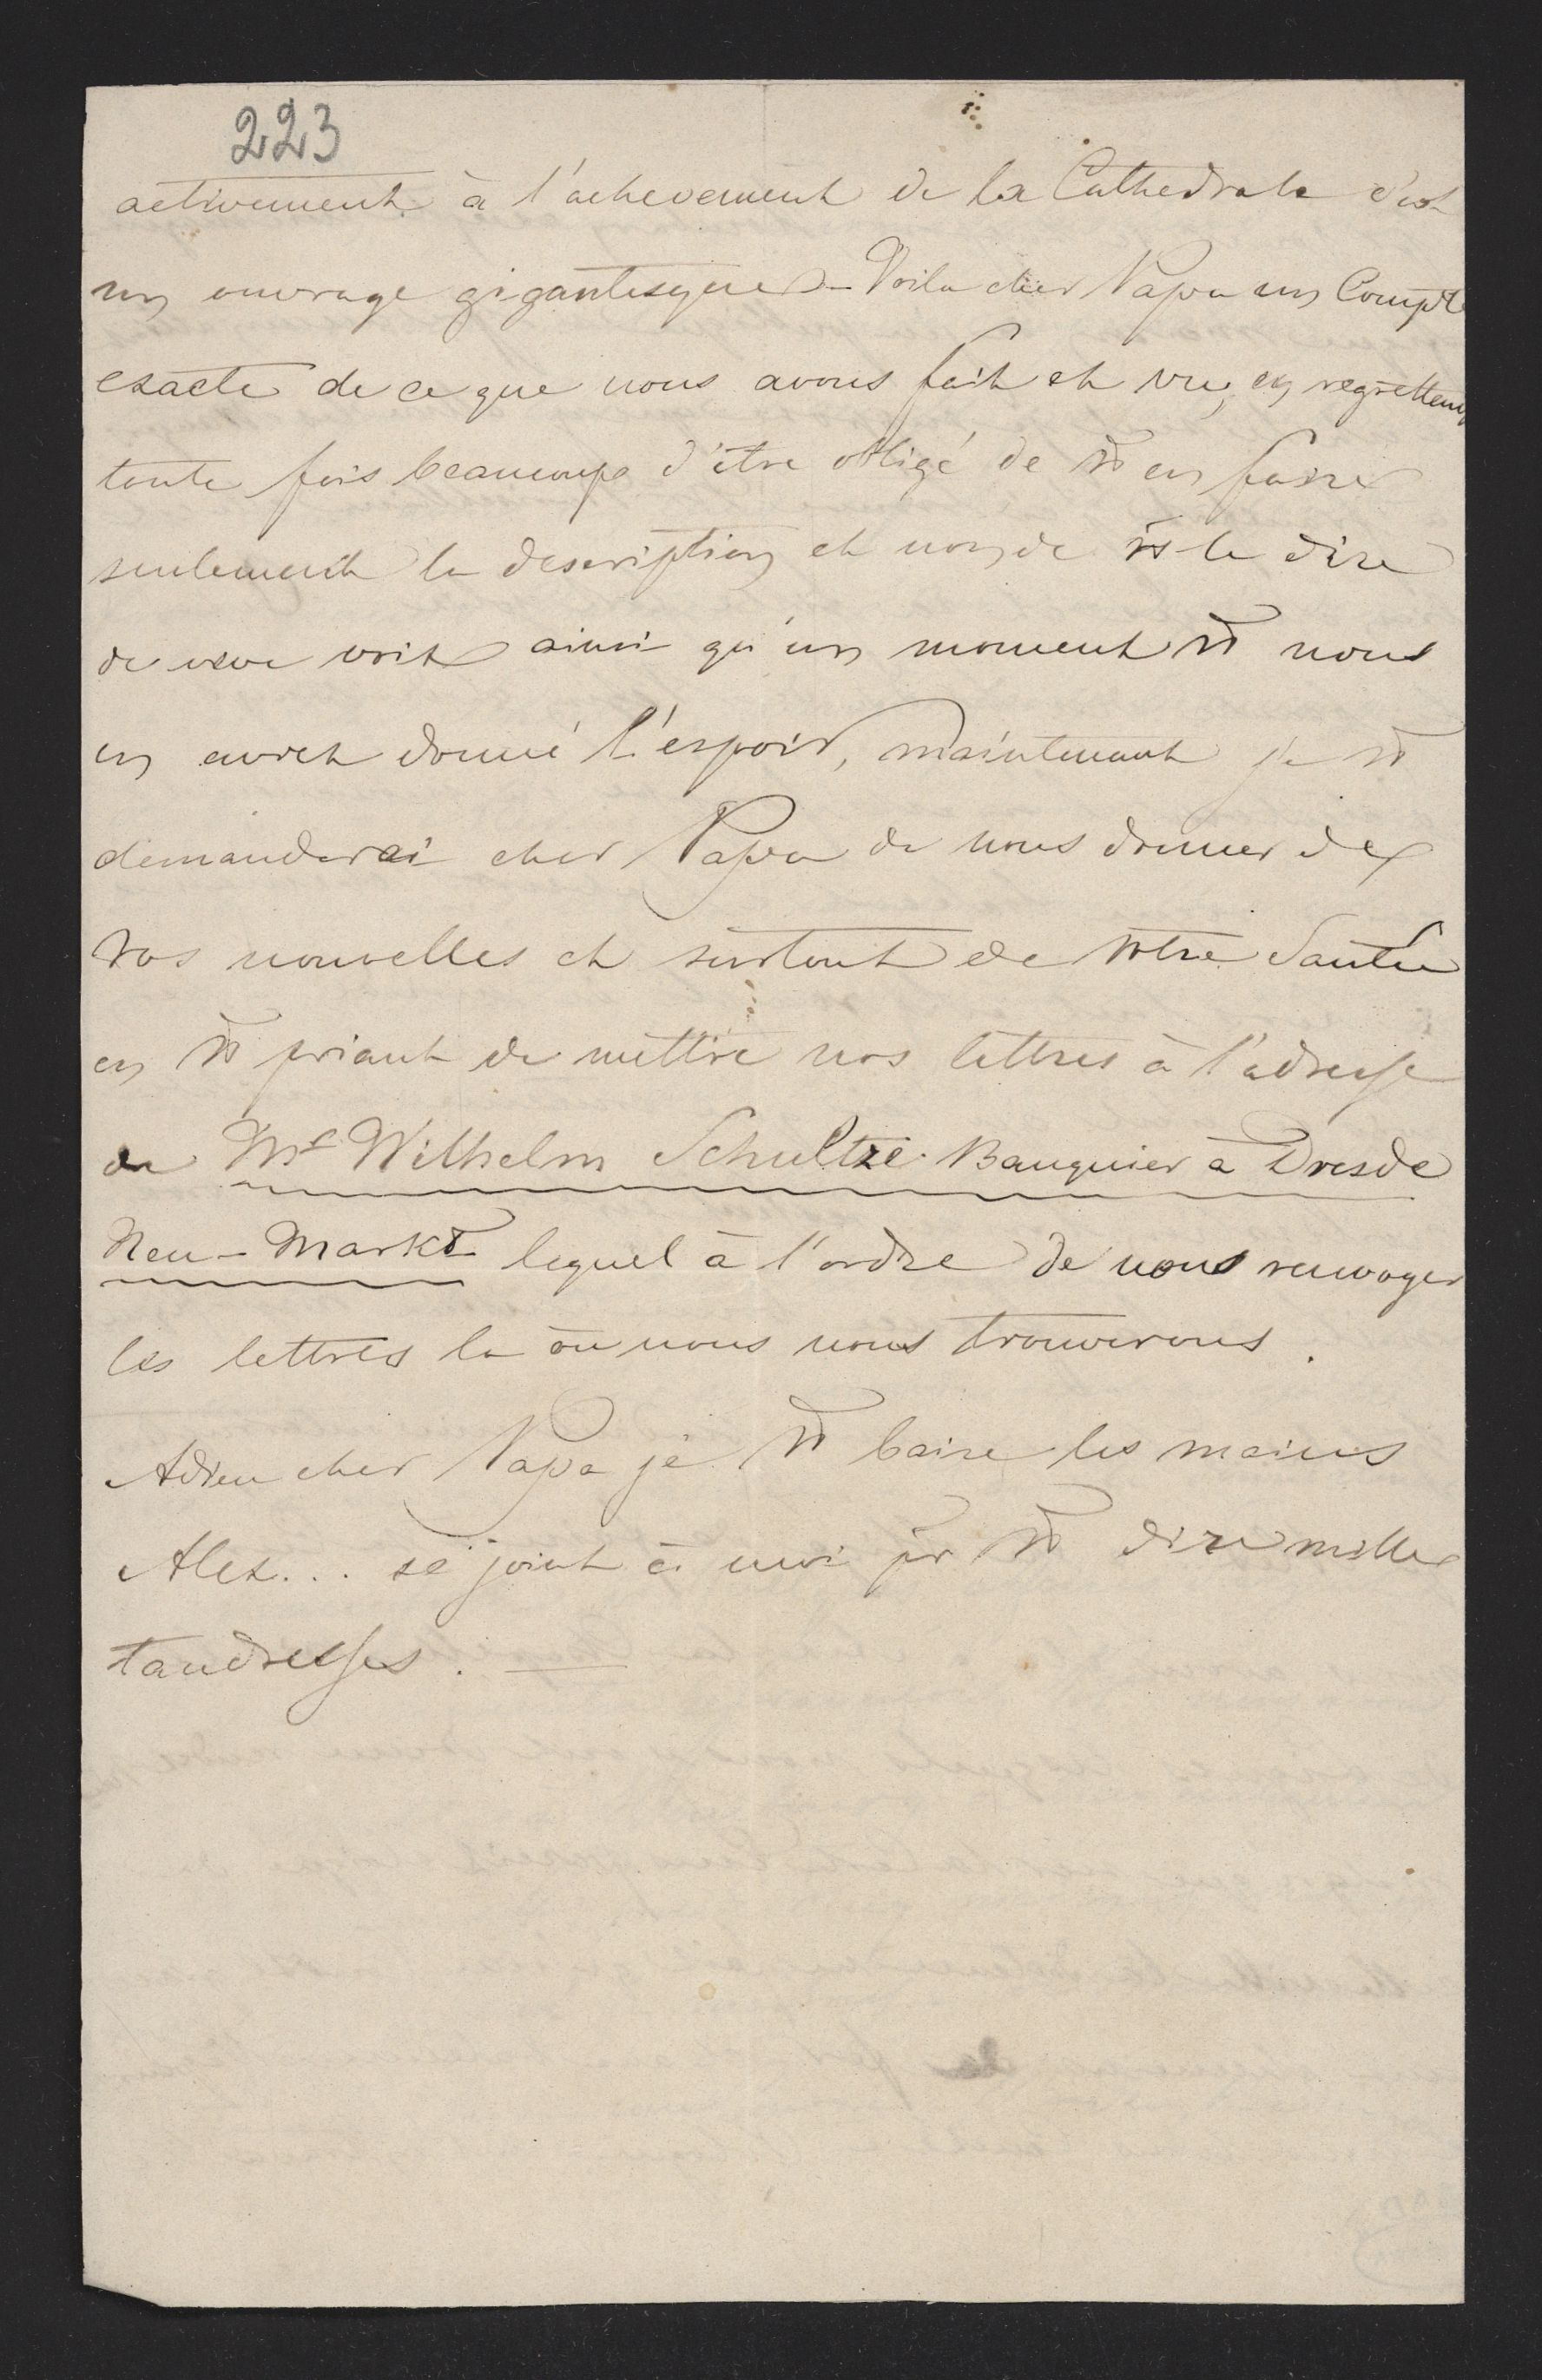 223
activement à l'achevement de la Cathedrale c'est
un ouvrage gigantesque – Voila cher Papa un Compte
exacte de ce que nous avons fait et vu, en regrettant
toute fois beaucoup d'être obligé de vs en faire
seulement la description et non de vs le dire
de vive voix ainsi qu'un moment vs nous
en aviez donné l'espoir, maintenant je vs
demanderai cher Papa de nous donner de
vos nouvelles et surtout de votre Santée
en vs priant de mettre vos lettres à l'adresse
de Mr Wilhelm Schultze Banquier à Dresde
Neu-Markt lequel à l'ordre de nous renvoyer
les lettres la ou nous nous trouverons.
Adieu cher Papa je vs baise les mains
Alex... se joint à moi pr vs dire milles
tandresses. —